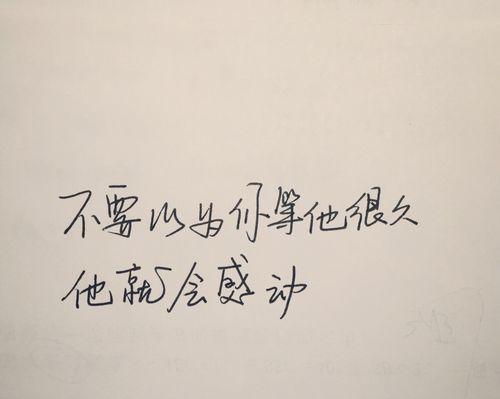 不要以为你等他很久
他就会感动